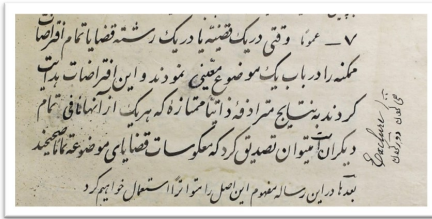 ۷ – عموماً وقتی در یک قضیه یا در یک رشته قضایا تمام افتراضات
ممکنه را در باب یک موضوع معینی نمودند و این افتراضات هدایت
کردند به نتایج مترادفه ذاتاً ممتازه که هر یک از آنها نافی تمام
دیگران است میتوان تصدیق کرد که معکوسات قضایای موضوعه تماماً صحیحند
بعدها در این رساله مفهوم این اصل را متواتراً استعمال خواهیم کرد
Exclure
کردن دور کردن